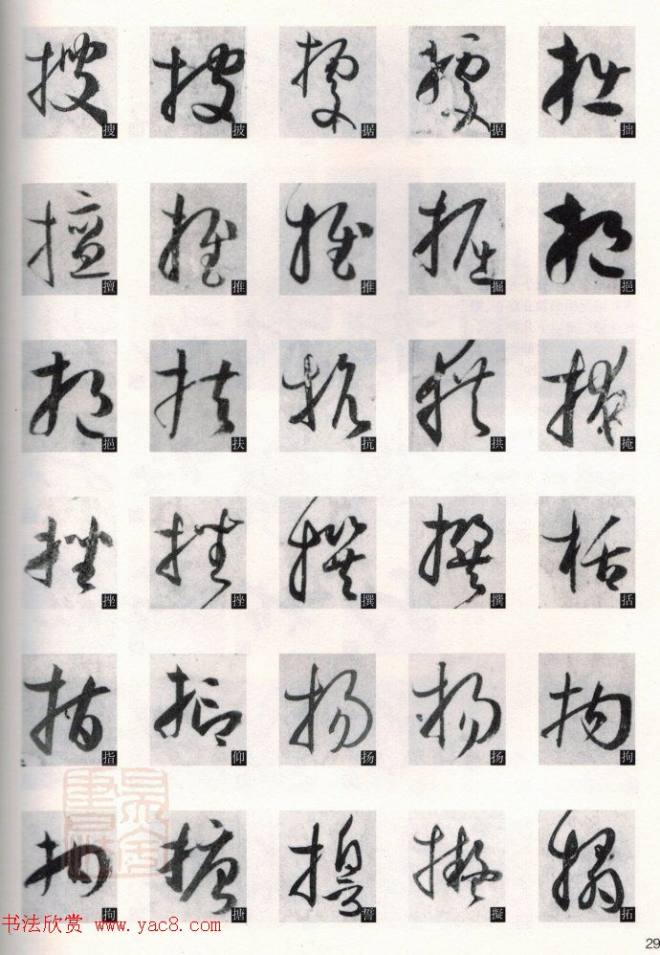 搜 披 据 据 拙
擅 推 推 掘 挹
挹 扶 抗 拱 掩
挫 挫 撰 撰 括
指 仰 扬 扬 拘
拘 搪 誓 擬 拓
书法欣赏 www.yac8.com
29